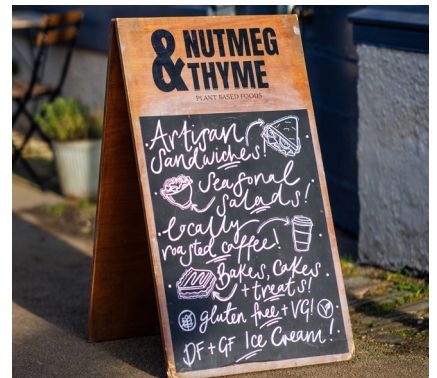 & NUTMEG
THYME
PLANT BASED FOODS
Artisan
sandwiches!
Seasonal
salads!
locally
roasted coffee!
Bakes, cakes
+ treats!
gluten free + VG! V
DF + GF Ice Cream!